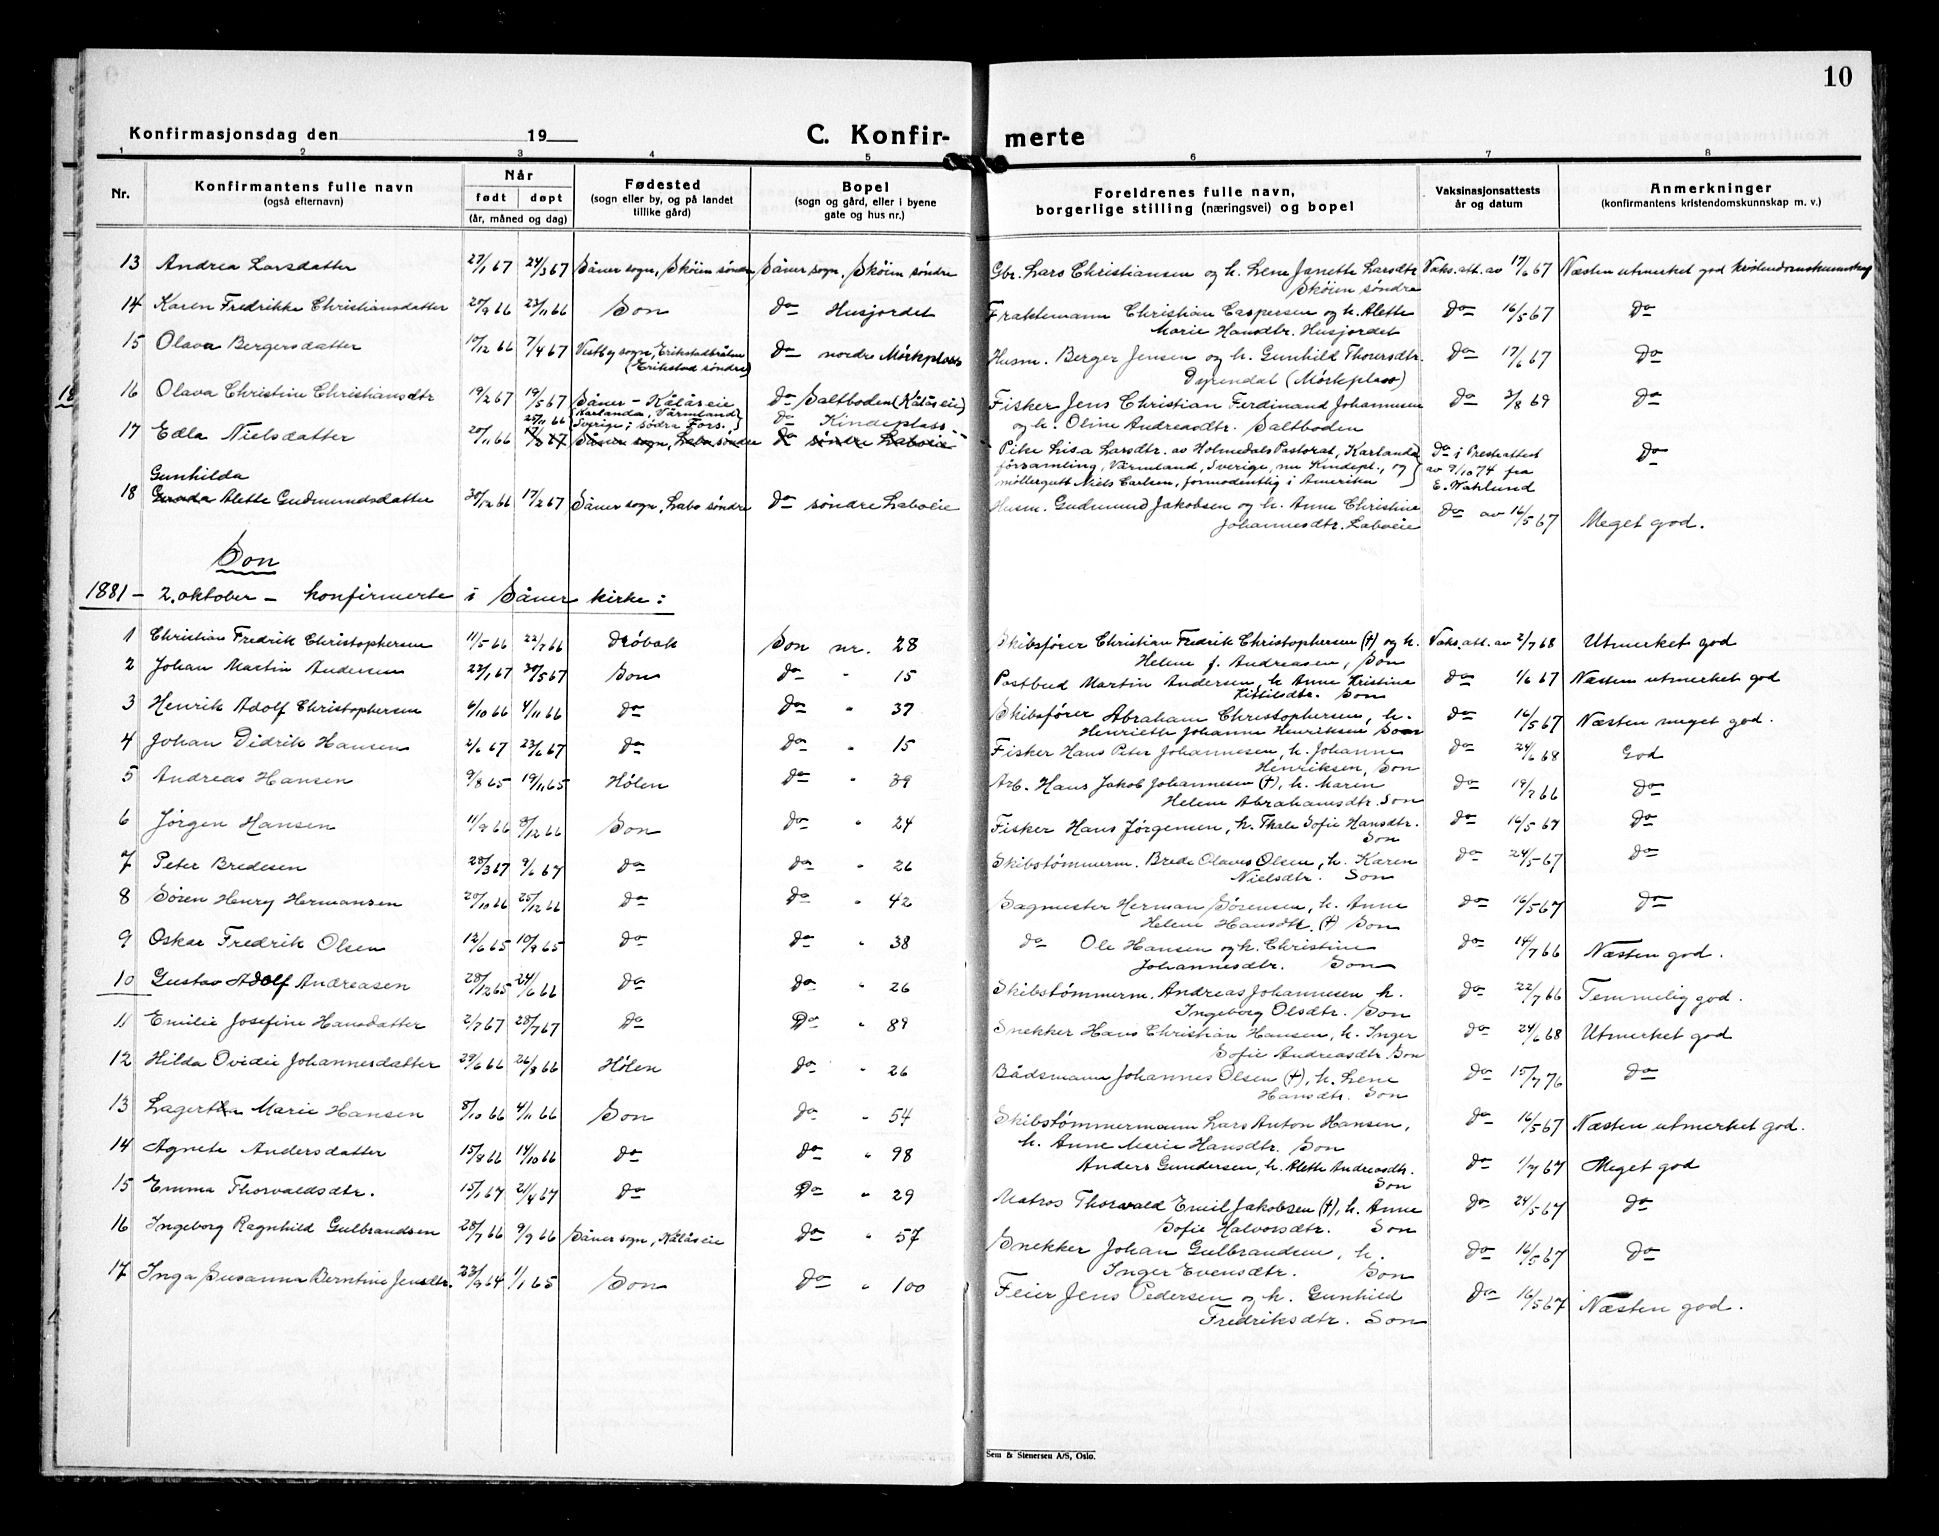 10
Konfirmasjonsdag den 19 C. Konfir- merte
1 2 3 4 5 6 7 8
Nr. Konfirmantens fulle navn (også efternavn) Når født døpt (år, måned og dag) Fødested (sogn eller by, og på landet tillike gård) Bopel (sogn og gård, eller i byene gate og hus nr.) Foreldrenes fulle navn, borgerlige stilling (næringsvei) og bopel Vaksinasjonsattests år og datum Anmerkninger (konfirmantens kristendomskunnskap m. v.)
13 Andrea Larsdatter 27/1 67 24/3 67 Såner sogn, Sköien söndre Såner sogn, Sköien söndre Gbr. Lars Christiansen og h. Lene Janette Larsdtr Vaks. att. av 17/6 67 Næsten utmerket god kristendomskunnskap
Sköien söndre
14 Karen Fredrikke Christiansdatter 20/9 66 23/11 66 Son do Husjordet Fraktemann Christian Caspersen og h. Alette do 16/5 67 do
Marie Hansdtr. Husjordet
15 Olava Bergersdatter 10/12 66 7/4 67 Vestby sogn, Erikstadbråten do nordre Mörkplass Husm. Berger Jensen og h. Gunhild Thorersdtr. do 17/6 67 do
(Erikstad söndre) Dyrendal (Mörkplass)
18 16 Olava Christine Christiansdtr 19/2 67 19/5 67 Såner - Kålåseie do Saltboden (Kålåseie) Fisker Jens Christian Ferdinand Johannesen do 3/8 69 do
25/11 66 (Karlanda, Värmland) do Kindeplass og h. Oline Andreasdtr. Saltboden
Sverige; södra Fors.
17 Edla Nielsdatter 20/11 66 Såner sogn, Labo söndre do söndre Laboeie Pike Lisa Larsdtr. av Holmedals Pastorat, Karlanda do i Presteattest do
församling, Värmland, Sverige, nu Kindepl., og av 9/10 74 fra
Gunhilda möllergutt Niels Carlsen, formodentlig i Amerika E. Wahlund
18 Alette Gudmundsdatter 30/12 66 17/2 67 Såner sogn, Labo söndre do söndre Laboeie Husm. Gudmund Jakobsen og h. Anne Christine do av 16/5 67 Meget god.
Johannesdtr. Laboeie
Son
1881 - 2. oktober - konfirmerte i Såner kirke:
1 Christian Fredrik Christophersen 11/5 66 22/7 66 Dröbak Son nr. 28 Skibsfører Christian Fredrik Christophersen (†) og h. Vaks. att. av 2/7 68 Utmerket god
Helene f. Andreasen, Son
2 Johan Martin Andersen 23/1 67 30/5 67 Son do " 15 Postbud Martin Andersen, h. Anne Kristine do 1/6 67 Næsten utmerket god
Kittilsdtr. Son
3 Henrik Adolf Christophersen 6/10 66 4/11 66 do do " 37 Skibsfører Abraham Christophersen, h. do 16/5 67 Næsten meget god.
Henriette Johanne Henriksen Son
4 Johan Didrik Hansen 2/6 67 23/6 67 do do " 15 Fisker Hans Peter Johannesen, h. Johanne do 24/6 68 God
Henriksen, Son
5 Andreas Hansen 9/8 65 19/11 65 Hølen do " 39 Arb. Hans Jakob Johannesen (†), h. Maren do 19/7 66 do
Helene Abrahamsdtr. Son
6 Jørgen Hansen 11/9 66 8/12 66 Son do " 24 Fisker Hans Jørgensen, h. Thale Sofie Hansdtr. do 16/5 67 do
Son
7 Peter Bredesen 28/3 67 9/6 67 do do " 26 Skibstømmerm. Brede Olaves Olsen, h. Karen do 24/5 67 do
Nielsdtr. Son
8 Søren Henry Hermansen 20/10 66 25/12 66 do do " 42 Sagmester Herman Sørensen, h. Anne do 16/5 67 do
Helene Hansdtr. (†) Son
9 Oskar Fredrik Olsen 12/6 65 10/9 65 do do " 38 do Ole Hansen og h. Christine do 14/7 66 Næsten god.
Johannesdtr. Son
10 Gustav Adolf Andreasen 28/12 65 24/6 66 do do " 26 Skibstømmerm. Andreas Johannesen h. do 22/7 66 Temmelig god.
Ingeborg Olsdtr. Son
11 Emilie Josefine Hansdatter 2/7 67 28/7 67 do do " 89 Snekker Hans Christian Hansen, h. Inger do 24/6 68 Utmerket god
Sofie Andreasdtr Son
12 Hilda Ovidie Johannesdatter 29/6 66 26/8 66 Hølen do " 26 Bådsmann Johannes Olsen (†), h. Lene do 15/7 76 do
Hansdtr. Son
13 Lagertha Marie Hansen 8/10 66 4/11 66 Son do " 54 Skibstømmermann Lars Anton Hansen, do 16/5 67 Næsten utmerket god.
h. Anne Marie Hansdtr. Son
14 Agnete Andersdatter 15/8 66 14/10 66 do do " 98 Anders Gundersen, h. Alette Andreasdtr. do 1/7 67 Meget god
Son
15 Emma Thorvaldsdtr. 15/1 67 21/4 67 do do " 29 Matros Thorvald Emil Jakobsen (†), h. Anne do 24/5 67 do
Sofie Halvorsdtr. Son
16 Ingeborg Ragnhild Gulbrandsen 28/7 66 9/9 66 Såner sogn, Kålåseie do " 57 Snekker Johan Gulbrandsen, h. do 16/5 67 do
Inger Evensdtr. Son
17 Inga Susanna Berntine Jensdtr. 23/9 64 1/1 65 Son do " 100 Feier Jens Pedersen og h. Gunhild do 16/5 67 Næsten god.
Fredriksdtr. Son
Sem & Stenersen A/S, Oslo.